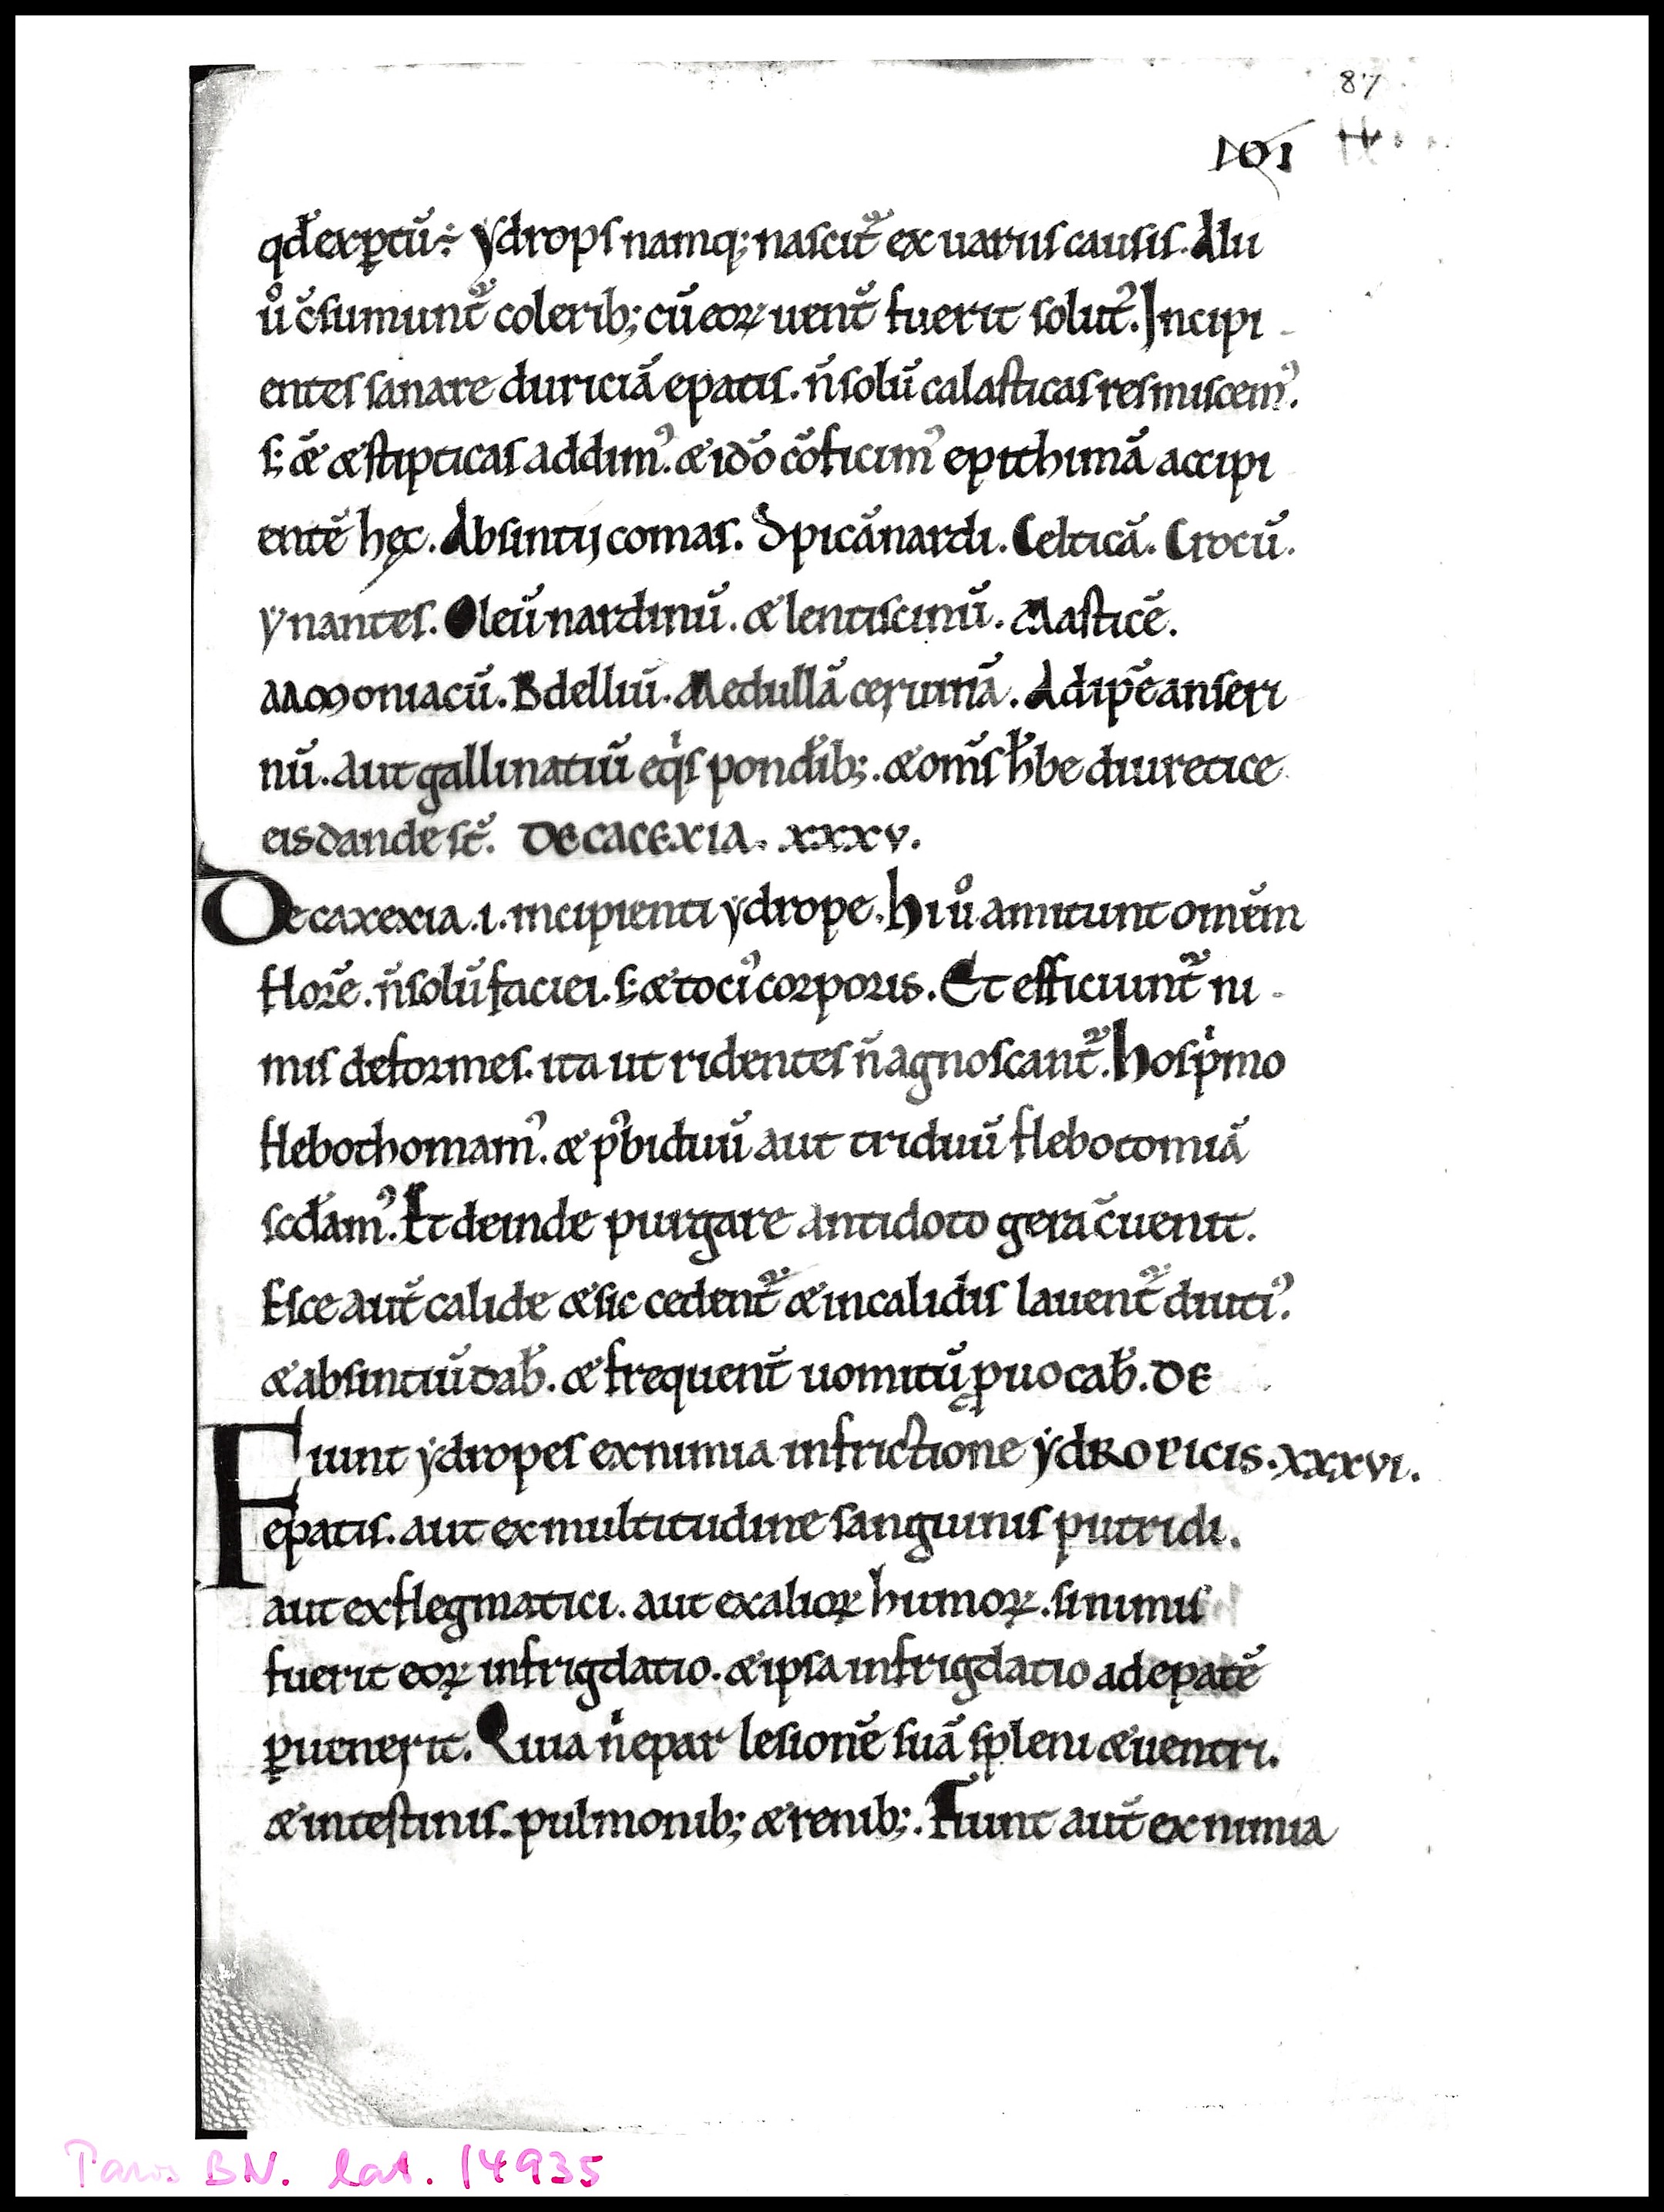 87
101
qd̄ exꝑtū÷ ydrops namq; nascit᷑ ex uariis causis. Alii
ů c̄sumunt᷑ colerib; cū eoꝝ uent̄ fuerit solut᾽. Incipi
entes sanare duriciā epatis. n̄ solū calasticas res miscem᾽.
s; ǣ æ stipticas addim᾽. æ idō cōficim᾽ epithimā accipi
entē hęc. Absintij comas. Spicā nardi. Celticā. Crocū.
ynantes. Oleū nardinū. æ lentiscinū. Masticē.
ammoniacū. Bdelliū. Medullā ceruinā. Adipē anseri
nū. aut gallinatiū eq̍s pond̄ib;. æ om̄s h̄be diuretice
eis dande st̄. DE CACEXIA. xxxv.
De caxexia .i. incipienti ydrope. hi ů amitunt omēm
florē. n̄ solū faciei. s; æ toci᾽ corporis. Et efficiunt᷑ ni
mis deformes. ita ut ridentes n̄ agnoscant᷑. hos p̍mo
flebothomam᾽. æ p᾽ biduū aut triduū flebotomiā
scd̄am᾽. Et deinde purgare antidoto gera c̄uenit.
Esce aut̄ calide æ sic cedent᷑ æ in calidis lauent᷑ diuti᾽.
æ absintiū dab̄. æ frequent̄ uomitū ꝓuocab̄. DE
Fiunt ydropes ex nimia infrictione ydROPICIS. xxxvi.
epatis. aut ex multitudine sanguinis putridi.
aut ex flegmatici. aut ex alioꝝ humoꝝ. si nimis
fuerit eoꝝ infrigdatio. æ ipsa infrigdatio ad epatē
ꝑuenerit. Quia n̍ epar lesionē suā spleni æ uentri.
æ intestinis. pulmonib; æ renib;. Fiunt aut̄ ex nimia
Paris BN. lat. 14935